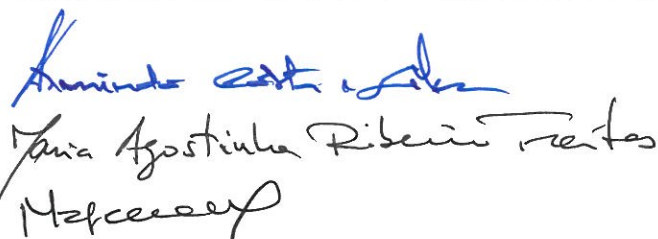 Armindo Costa e Silva
Maria Agostinha Ribeiro Freitas